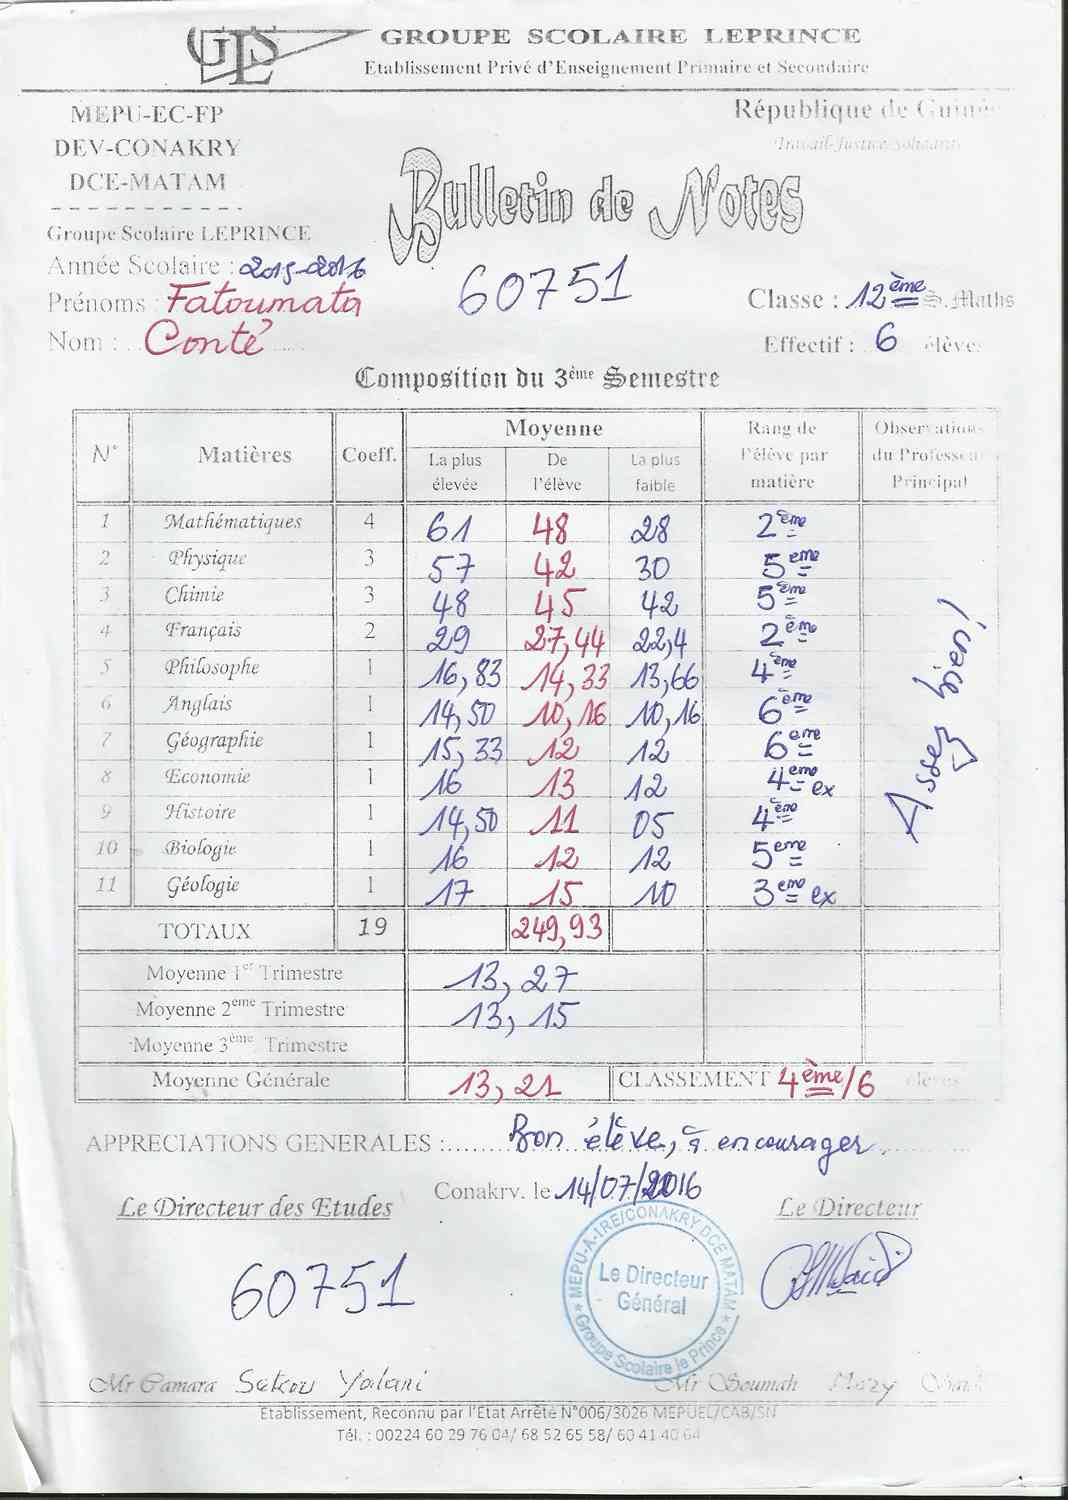 GLS GROUPE SCOLAIRE LEPRINCE
Etablissement Privé d'Enseignement Primaire et Secondaire
MEPU-EC-FP République de Guinée
DEV-CONAKRY Travail-Justice-Solidarité
DCE-MATAM
Bulletin de Notes
Groupe Scolaire LEPRINCE
Année Scolaire : 2015-2016
60751
Prénoms : Fatoumata Classe : 12ème S.Maths
Nom : Conté Effectif : 6 élèves
Composition du 3ème Semestre
N° Matières Coeff. Moyenne Rang de l'élève par matière Observations du Professeur Principal
La plus élevée De l'élève La plus faible
1 Mathématiques 4 61 48 28 2ème
2 Physique 3 57 42 30 5ème
3 Chimie 3 48 45 42 5ème
4 Français 2 29 27,44 22,4 2ème
5 Philosophe 1 16,83 14,33 13,66 4ème
6 Anglais 1 14,50 10,16 10,16 6ème
7 Géographie 1 15,33 12 12 6eme
8 Economie 1 16 13 12 4eme ex
9 Histoire 1 14,50 11 05 4ème
10 Biologie 1 16 12 12 5eme
11 Géologie 1 17 15 10 3eme ex
Assez bien!
TOTAUX 19 249,93
Moyenne 1er Trimestre 13,27
Moyenne 2eme Trimestre 13,15
Moyenne 3ème Trimestre
Moyenne Générale 13,21 CLASSEMENT 4ème/6 élèves
APPRECIATIONS GENERALES :...... Bon élève, à encourager.
Conakry. le 14/07/2016
Le Directeur des Etudes Le Directeur
MEPU-A-IRE/CONAKRY DCE MATAM
Le Directeur
Général
Groupe Scolaire le Prince
60751
Mr Camara Sekou Yalani Mr Soumah
Etablissement, Reconnu par l'Etat Arrêté N°006/3026 MEPUEL/CAB/SN
Tél. : 00224 60 29 76 04/ 68 52 65 58/ 60 41 40 64